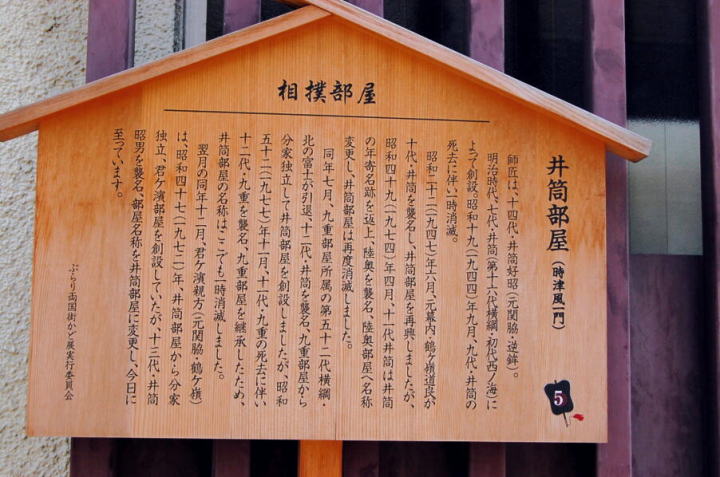 相撲部屋
井筒部屋(時津風一門)
師匠は、十四代・井筒好昭(元関脇・逆鉾)。
明治時代、七代・井筒(第十六代横綱・初代西ノ海)に
よって創設。昭和十九(一九四四)年九月、九代・井筒の
死去に伴い一時消滅。
昭和二十二(一九四七)年六月、元幕内・鶴ヶ嶺道芳が
十代・井筒を襲名し、井筒部屋を再興しましたが、
昭和四十九(一九七四)年四月、十一代井筒は井筒
の年寄名跡を返上、陸奥を襲名、陸奥部屋へ名称
変更し、井筒部屋は再度消滅しました。
同年七月、九重部屋所属の第五十二代横綱・
北の富士が引退、十二代・井筒を襲名、九重部屋から
分家独立して井筒部屋を創設しましたが、昭和
五十二(一九七七)年十一月、十一代・九重の死去に伴い
十二代・九重を襲名、九重部屋を継承したため、
井筒部屋の名称はここでも一時消滅しました。
翌月の同年十二月、君ケ濱親方(元関脇・鶴ケ嶺)
は、昭和四十七(一九七二)年、井筒部屋から分家
独立、君ケ濱部屋を創設していたが、十三代・井筒
昭男を襲名、部屋名称を井筒部屋に変更し、今日に
至っています。
ぶらり両国街かど展実行委員会
5